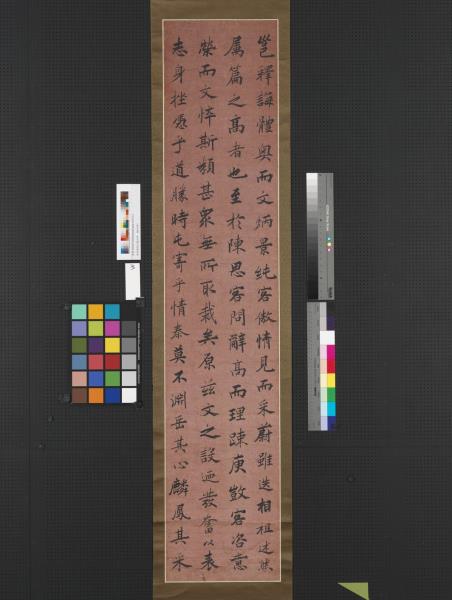 邕釋誨體奧而文炳景純客傲情見而采蔚雖迭相祖述然
属篇之高者也至於陳思客問辭高而理疎庾敳客咨意
榮而文悴斯類甚眾無所取裁矣原茲文之設迺發奮以表
志身挫憑乎道勝時屯寄乎情泰莫不淵岳其心麟鳳其采